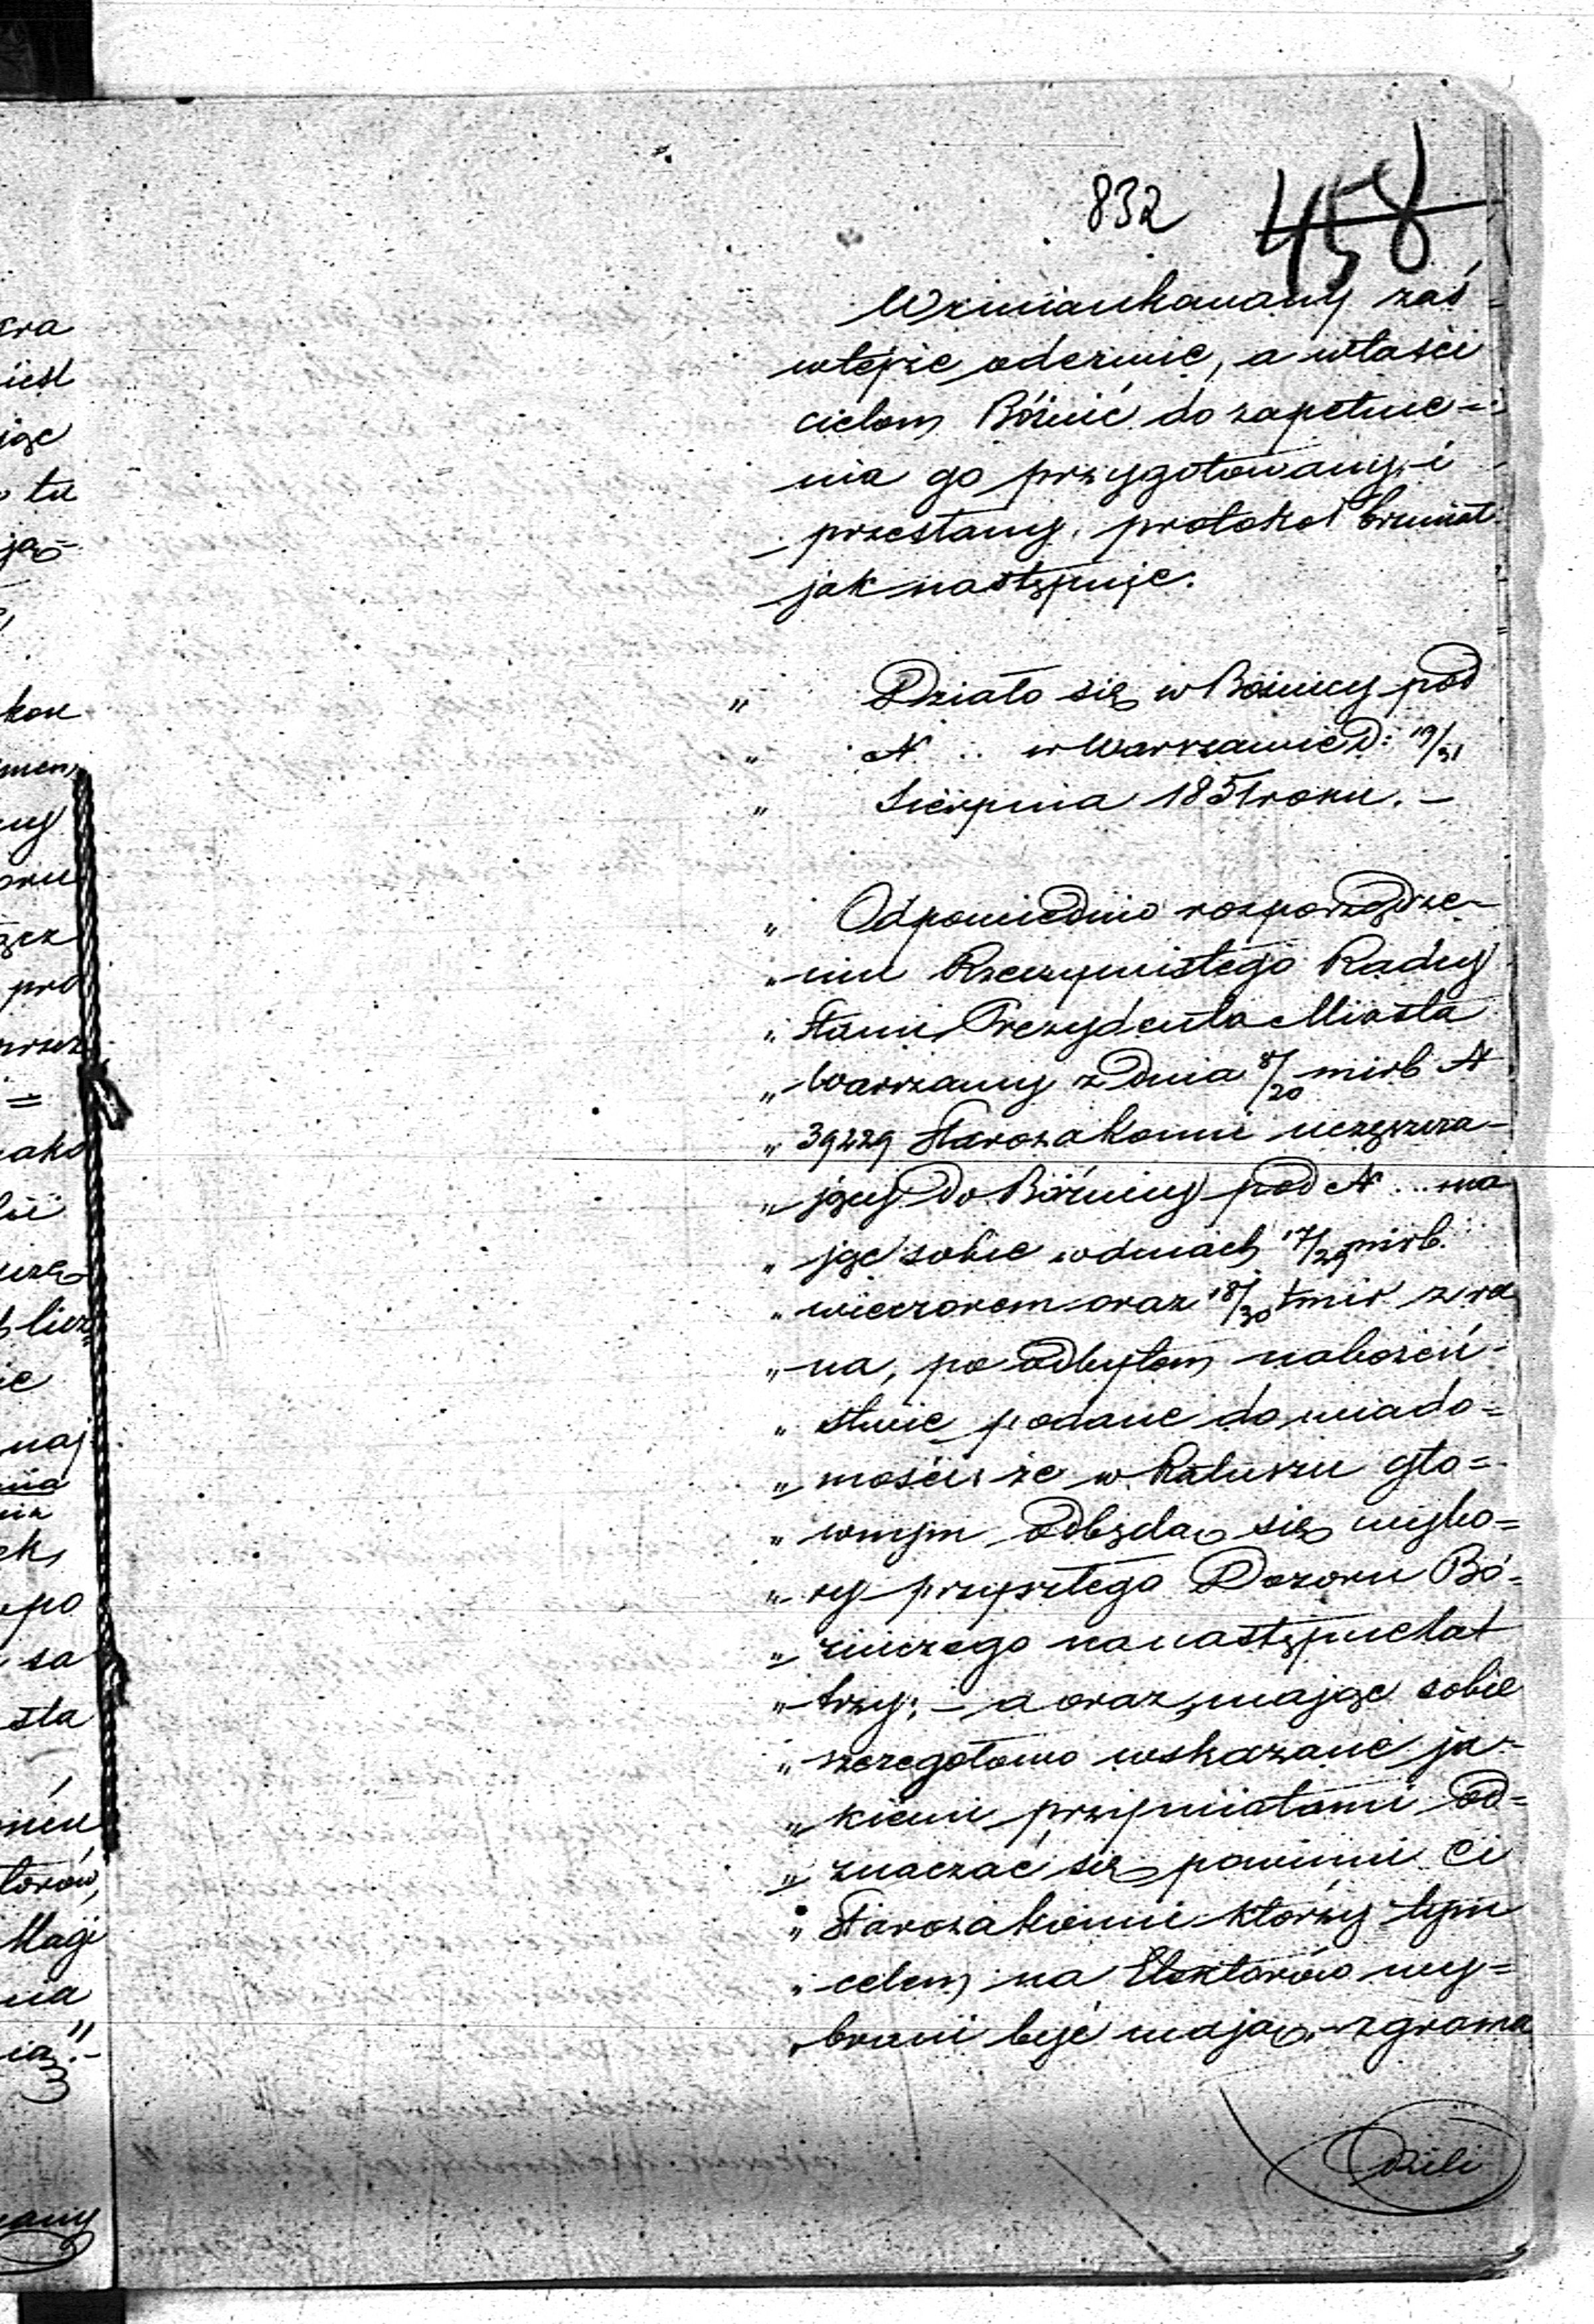 832 458
Wzmiankowany zaś
wtejże odezwie, a właści
cielom Bóżnić do zapełnie=
nia go przygotowany i
przesłany, protokoł brzmiał
jak następuje.
" Działo się w Bóżnicy pod
" N .. w Warszawie d: 19/31
" Sierpnia 1851 roku. –
" Odpowiednio rozporządze-
" niu Rzeczywistego Radcy
" Stanu Prezydenta Miasta
" Warszawy z dnia 8/20 m i r b N
" 39229 Starozakonni uczęszcza-
" jący do Bóżnicy pod N ... ma
" jąc sobie w dniach 17/29 m i r b.
" wieczorem oraz 18/30 t m i r z ra
" na, po odbytem nabożeń-
" stwie podane do wiado=
" mości, że w Ratuszu głó=
" wnym odbędą się wybo=
" ry przyszłego Dozoru Bó=
" żniczego na następne lat
" trzy; – a oraz, mając sobie
" szczegółowo wskazane ja-
" kiemi przymiotami od=
" znaczać się powinni Ci
" Starozakonni którzy tym
" celem na Elektorów wy=
" brani być mają, – zgroma
dzili